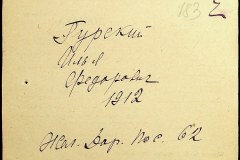 183 2
Гурский
Илья
Федорович
1912
Жел. Дор. Пос. 62